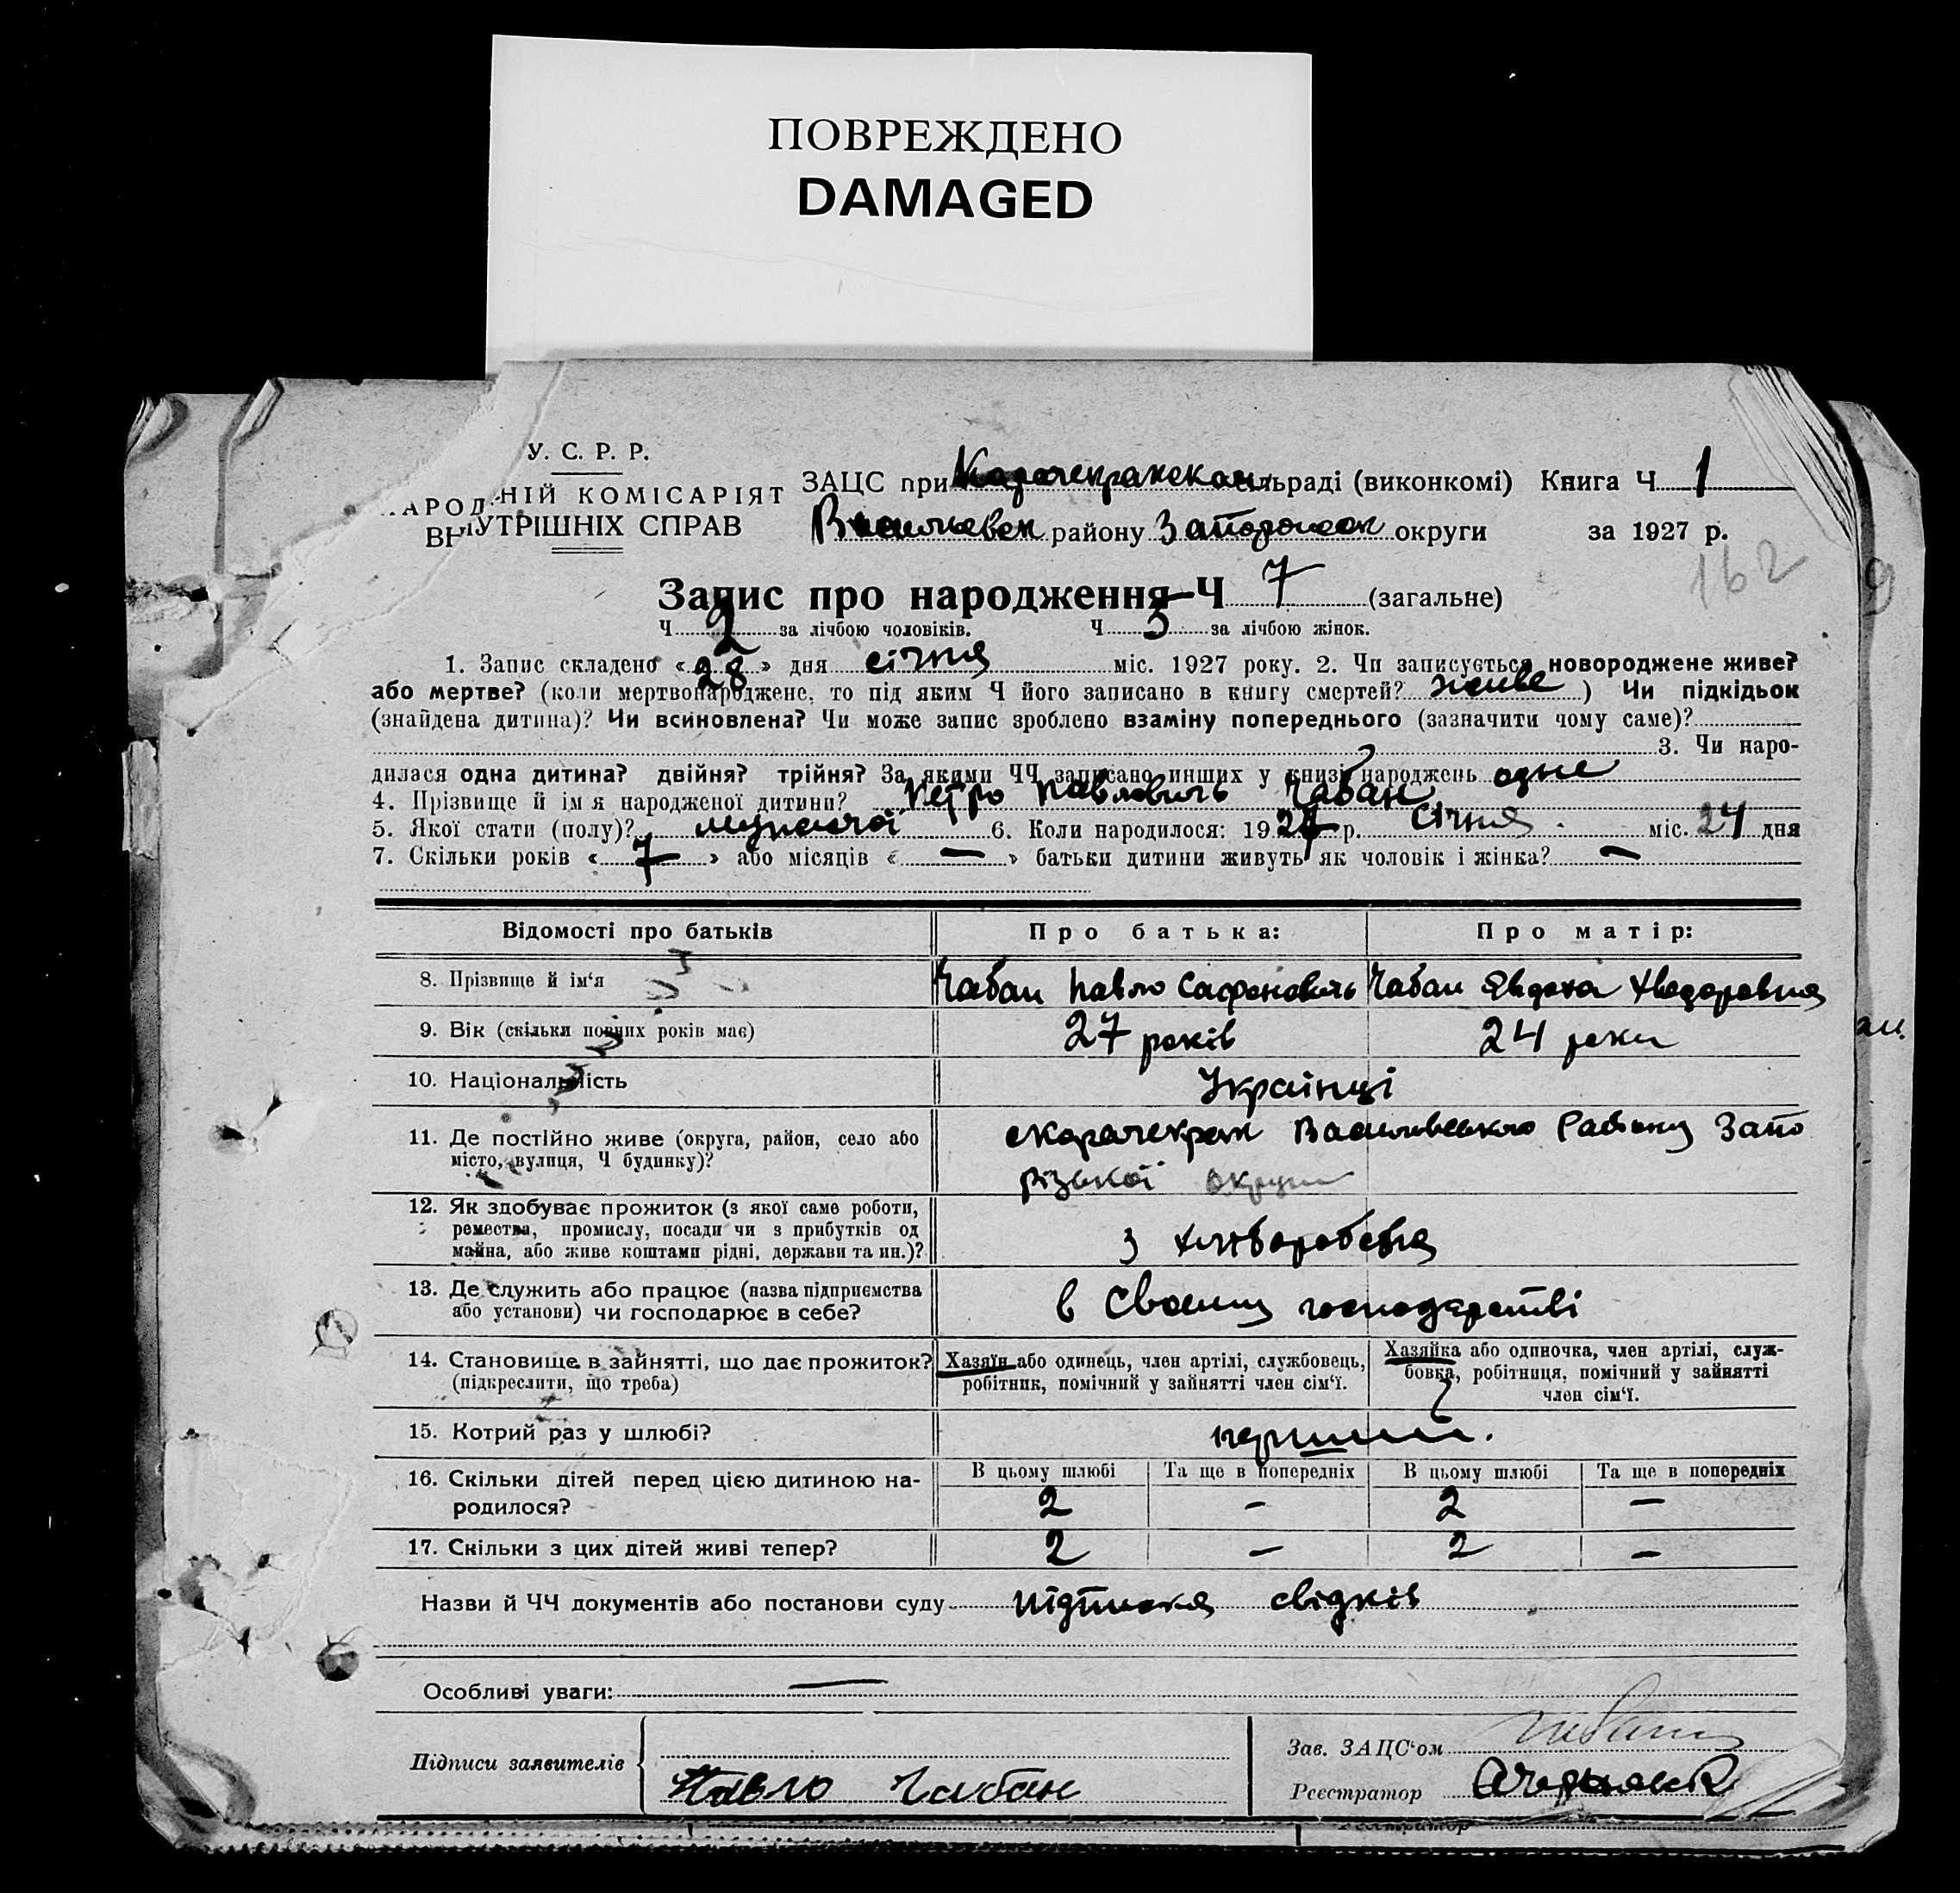 ПОВРЕЖДЕНО
DAMAGED
У. С. Р. Р.
НАРОДНІЙ КОМІСАРІЯТ
ВНУТРІШНІХ СПРАВ
ЗАЦС при сільраді (виконкомі) Книга Ч 1
району округи за 1927 р.
162
9
Запис про народження Ч 7 (загальне)
Ч 2 за лічбою чоловіків. Ч 5 за лічбою жінок.
1. Запис складено «28» дня січня міс. 1927 року. 2. Чи записується новороджене живе?
або мертве? (коли мертвонароджене, то під яким Ч його записано в книгу смертей? живе ) Чи підкідьок
(знайдена дитина)? Чи всиновлена? Чи може запис зроблено взаміну попереднього (зазначити чому саме)?
3. Чи наро-
дилася одна дитина? двійня? трійня? За якими ЧЧ записано инших у книзі народжень одне
4. Прізвище й ім'я народженої дитини? Петро Павлович Чабан
5. Якої стати (полу)? мужчої 6. Коли народилося: 1927 р. січня міс. 24 дня
7. Скільки років «7» або місяців «—» батьки дитини живуть як чоловік і жінка? —
Відомості про батьків Про батька: Про матір:
8. Прізвище й ім'я Чабан Павло Сафонович Чабан Явдоха Хведоровна
9. Вік (скільки повних років має) 27 років 24 роки
10. Національність Українці
11. Де постійно живе (округа, район, село або Василівського Району Запо
місто, вулиця, Ч будинку)? різької округи
12. Як здобуває прожиток (з якої саме роботи,
ремества, промислу, посади чи з прибутків од з
майна, або живе коштами рідні, держави та ин.)?
13. Де служить або працює (назва підприємства в своєму господарстві
або установи) чи господарює в себе?
14. Становище в зайнятті, що дає прожиток? Хазяїн або одинець, член артілі, службовець, Хазяйка або одиночка, член артілі, служ-
(підкреслити, що треба) робітник, помічний у зайнятті член сім'ї. бовка, робітниця, помічний у зайнятті
член сім'ї.
15. Котрий раз у шлюбі? перший.
16. Скільки дітей перед цією дитиною на- В цьому шлюбі Та ще в попередніх В цьому шлюбі Та ще в попередніх
родилося? 2 — 2 —
17. Скільки з цих дітей живі тепер? 2 — 2 —
Назви й ЧЧ документів або постанови суду підписка свідків
Особливі уваги: —
Підписи заявителів Зав. ЗАЦС'ом
Павло Чабан Реєстратор